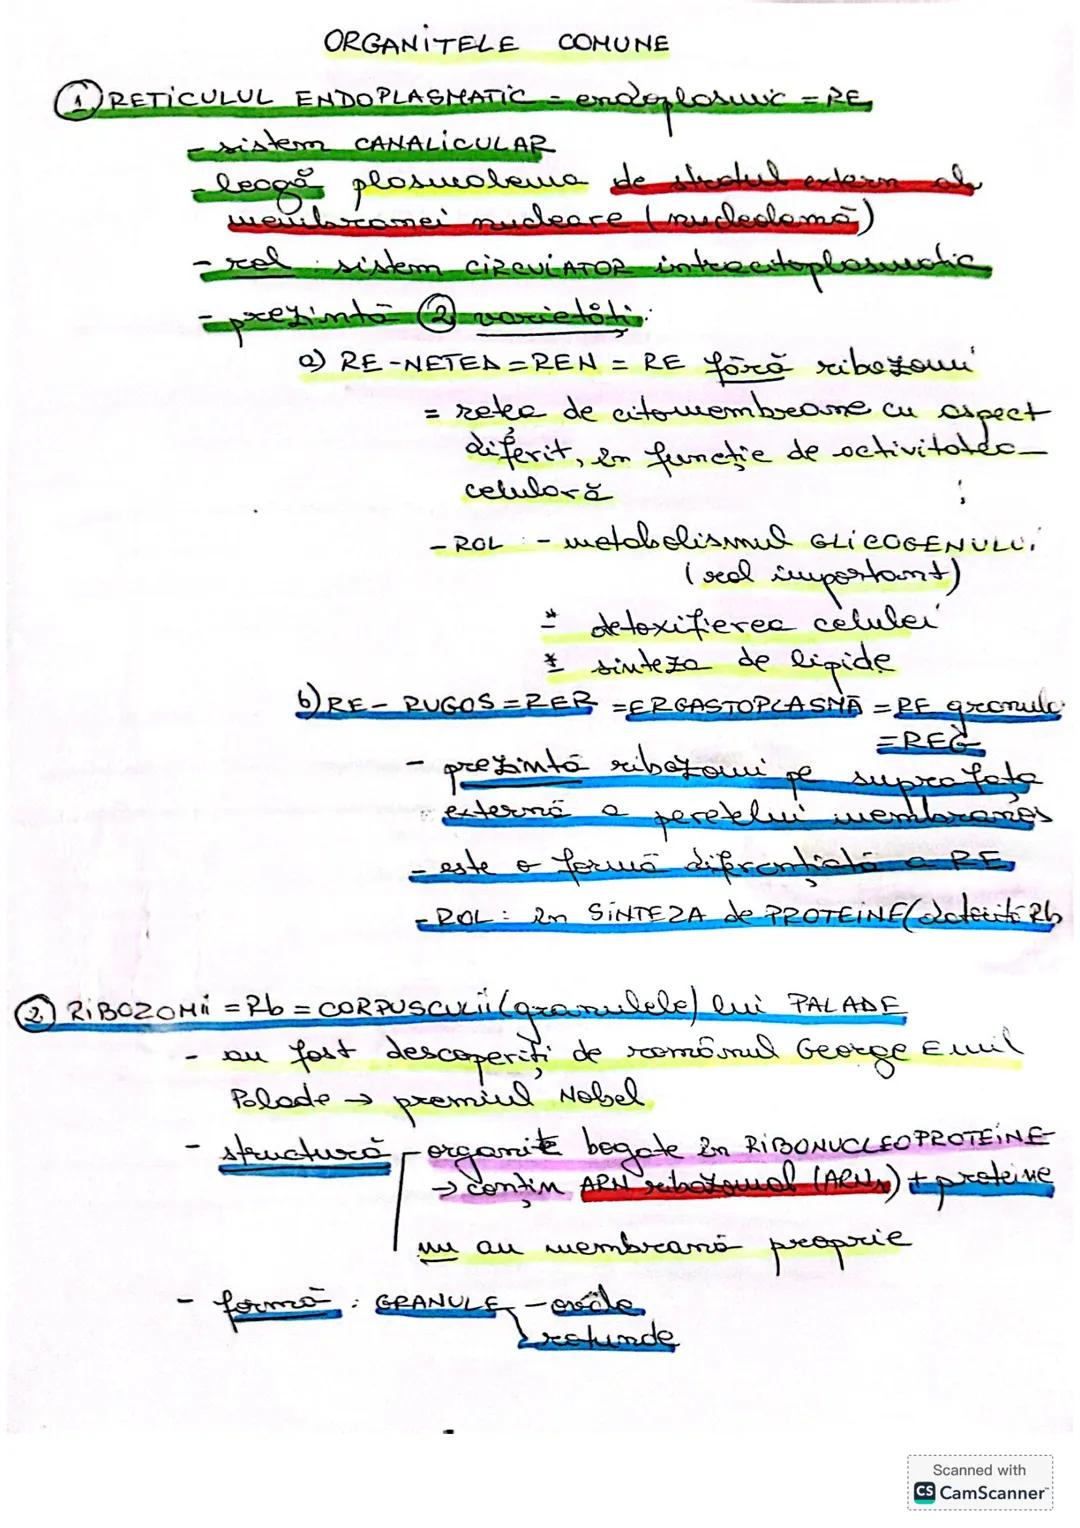 ORGANITELE COMUNE
1 RETICULUL ENDOPLASMATIC = endoplasmic = RE
- sistem CANALICULAR
- leagă plasmalema de stratul extern al
membranei nucleare (nucleolemă)
- rol : sistem CIRCULATOR intracitoplasmatic
- prezintă 2 varietăți:
a) RE-NETED = REN = RE fără ribozomi
= rețea de citomembrane cu aspect
diferit, în funcție de activitatea
celulară ;
- ROL : - metabolismul GLICOGENULUI
(rol important)
* detoxifierea celulei
* sinteza de lipide
b) RE - RUGOS = RER = ERGASTOPLASMĂ = RE granular
= REG
- prezintă ribozomi pe suprafața
externă a peretelui membranos
- este o formă difrențiată a RE
- ROL : în SINTEZA de PROTEINE (datorită Rb
2 RIBOZOMII = Rb = CORPUSCULII (granulele) lui PALADE
- au fost descoperiți de românul George Emil
Palade → premiul Nobel
- structură - organite bogate în RIBONUCLEOPROTEINE
→ conțin ARN ribozomal (ARNr) + proteine
nu au membrană proprie
- formă : GRANULE - ovale
rotunde
Scanned with
CS CamScanner